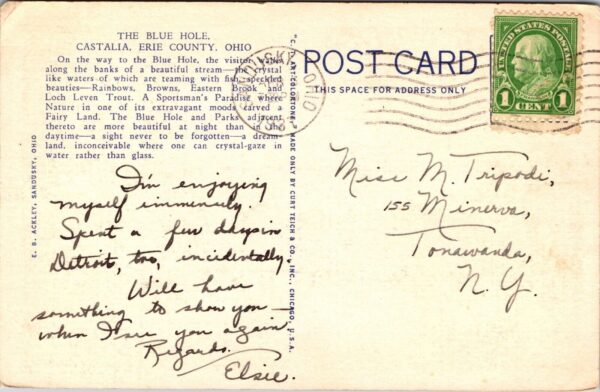 THE BLUE HOLE,
CASTALIA, ERIE COUNTY, OHIO
On the way to the Blue Hole, the visitor walks
along the banks of a beautiful stream—the crystal
like waters of which are teaming with fish, speckled
beauties—Rainbows, Browns, Eastern Brook and
Loch Leven Trout. A Sportsman's Paradise where
Nature in one of its extravagant moods carved a
Fairy Land. The Blue Hole and Parks adjacent
thereto are more beautiful at night than in the
daytime—a sight never to be forgotten—a dream-
land, inconceivable where one can crystal-gaze in
water rather than glass.
E. B. ACKLEY, SANDUSKY, OHIO
I'm enjoying
myself immensely.
Spent a few days in
Detroit, too, incidentally.
Will have
something to show you —
when I see you again
Regards,
Elsie.
"C. T. ART-COLORTONE" MADE ONLY BY CURT TEICH & CO., INC., CHICAGO, U.S.A.
SANDUSKY OHIO
POST CARD
THIS SPACE FOR ADDRESS ONLY
UNITED STATES POSTAGE
1 CENT 1
Miss M. Tripodi,
155 Minerva,
Tonawanda,
N. Y.